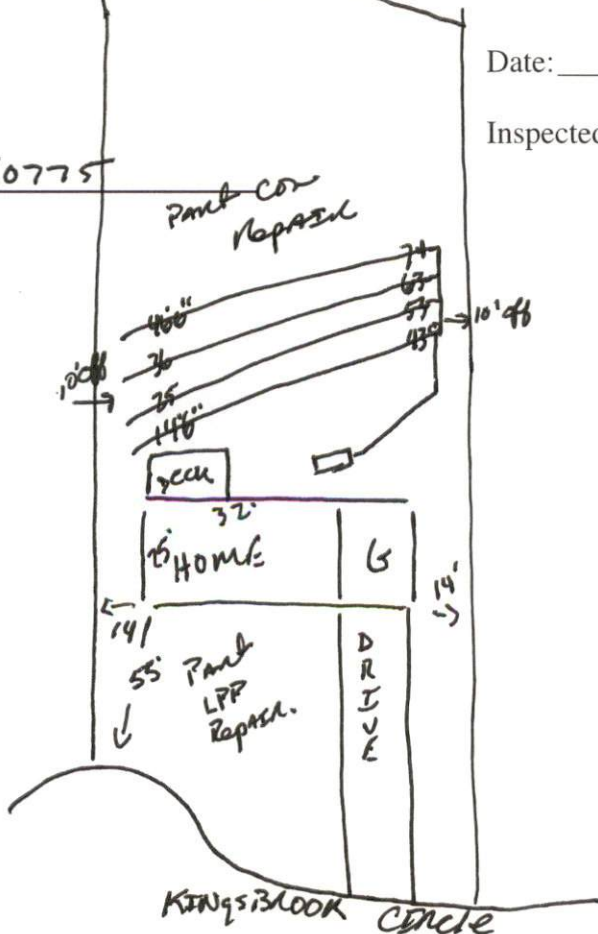 Date:
Inspected
0775
Part Con
Repair
74
63
53
43
46'6"
36
25
14'6"
10' off
10' off
Deck
32'
25'
HOME
G
14'
14'
55'
Part
LPP
Repair.
DRIVE
KINGSBROOK CIRCLE